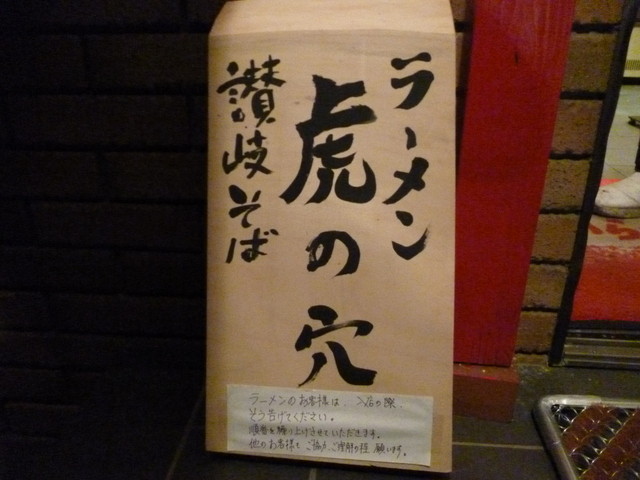 ラーメン
虎の穴
讃岐そば
ラーメンのお客様は、入店の際、
そう告げてください。
順番を繰り上げさせていただきます。
他のお客様も ご協力、ご理解の程 願います。